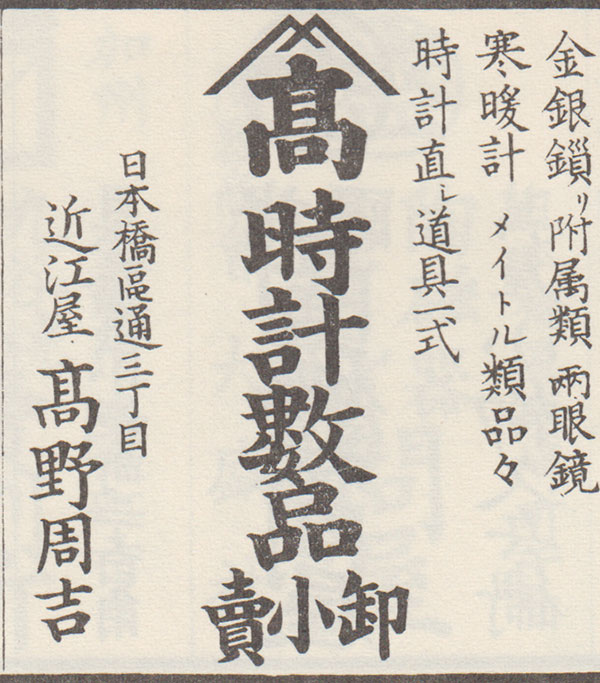 金銀鎖リ附属類 兩眼鏡
寒暖計 メイトル類品々
時計直シ道具一式
髙
時計數品
卸小賣
日本橋區通三丁目
近江屋 髙野周吉